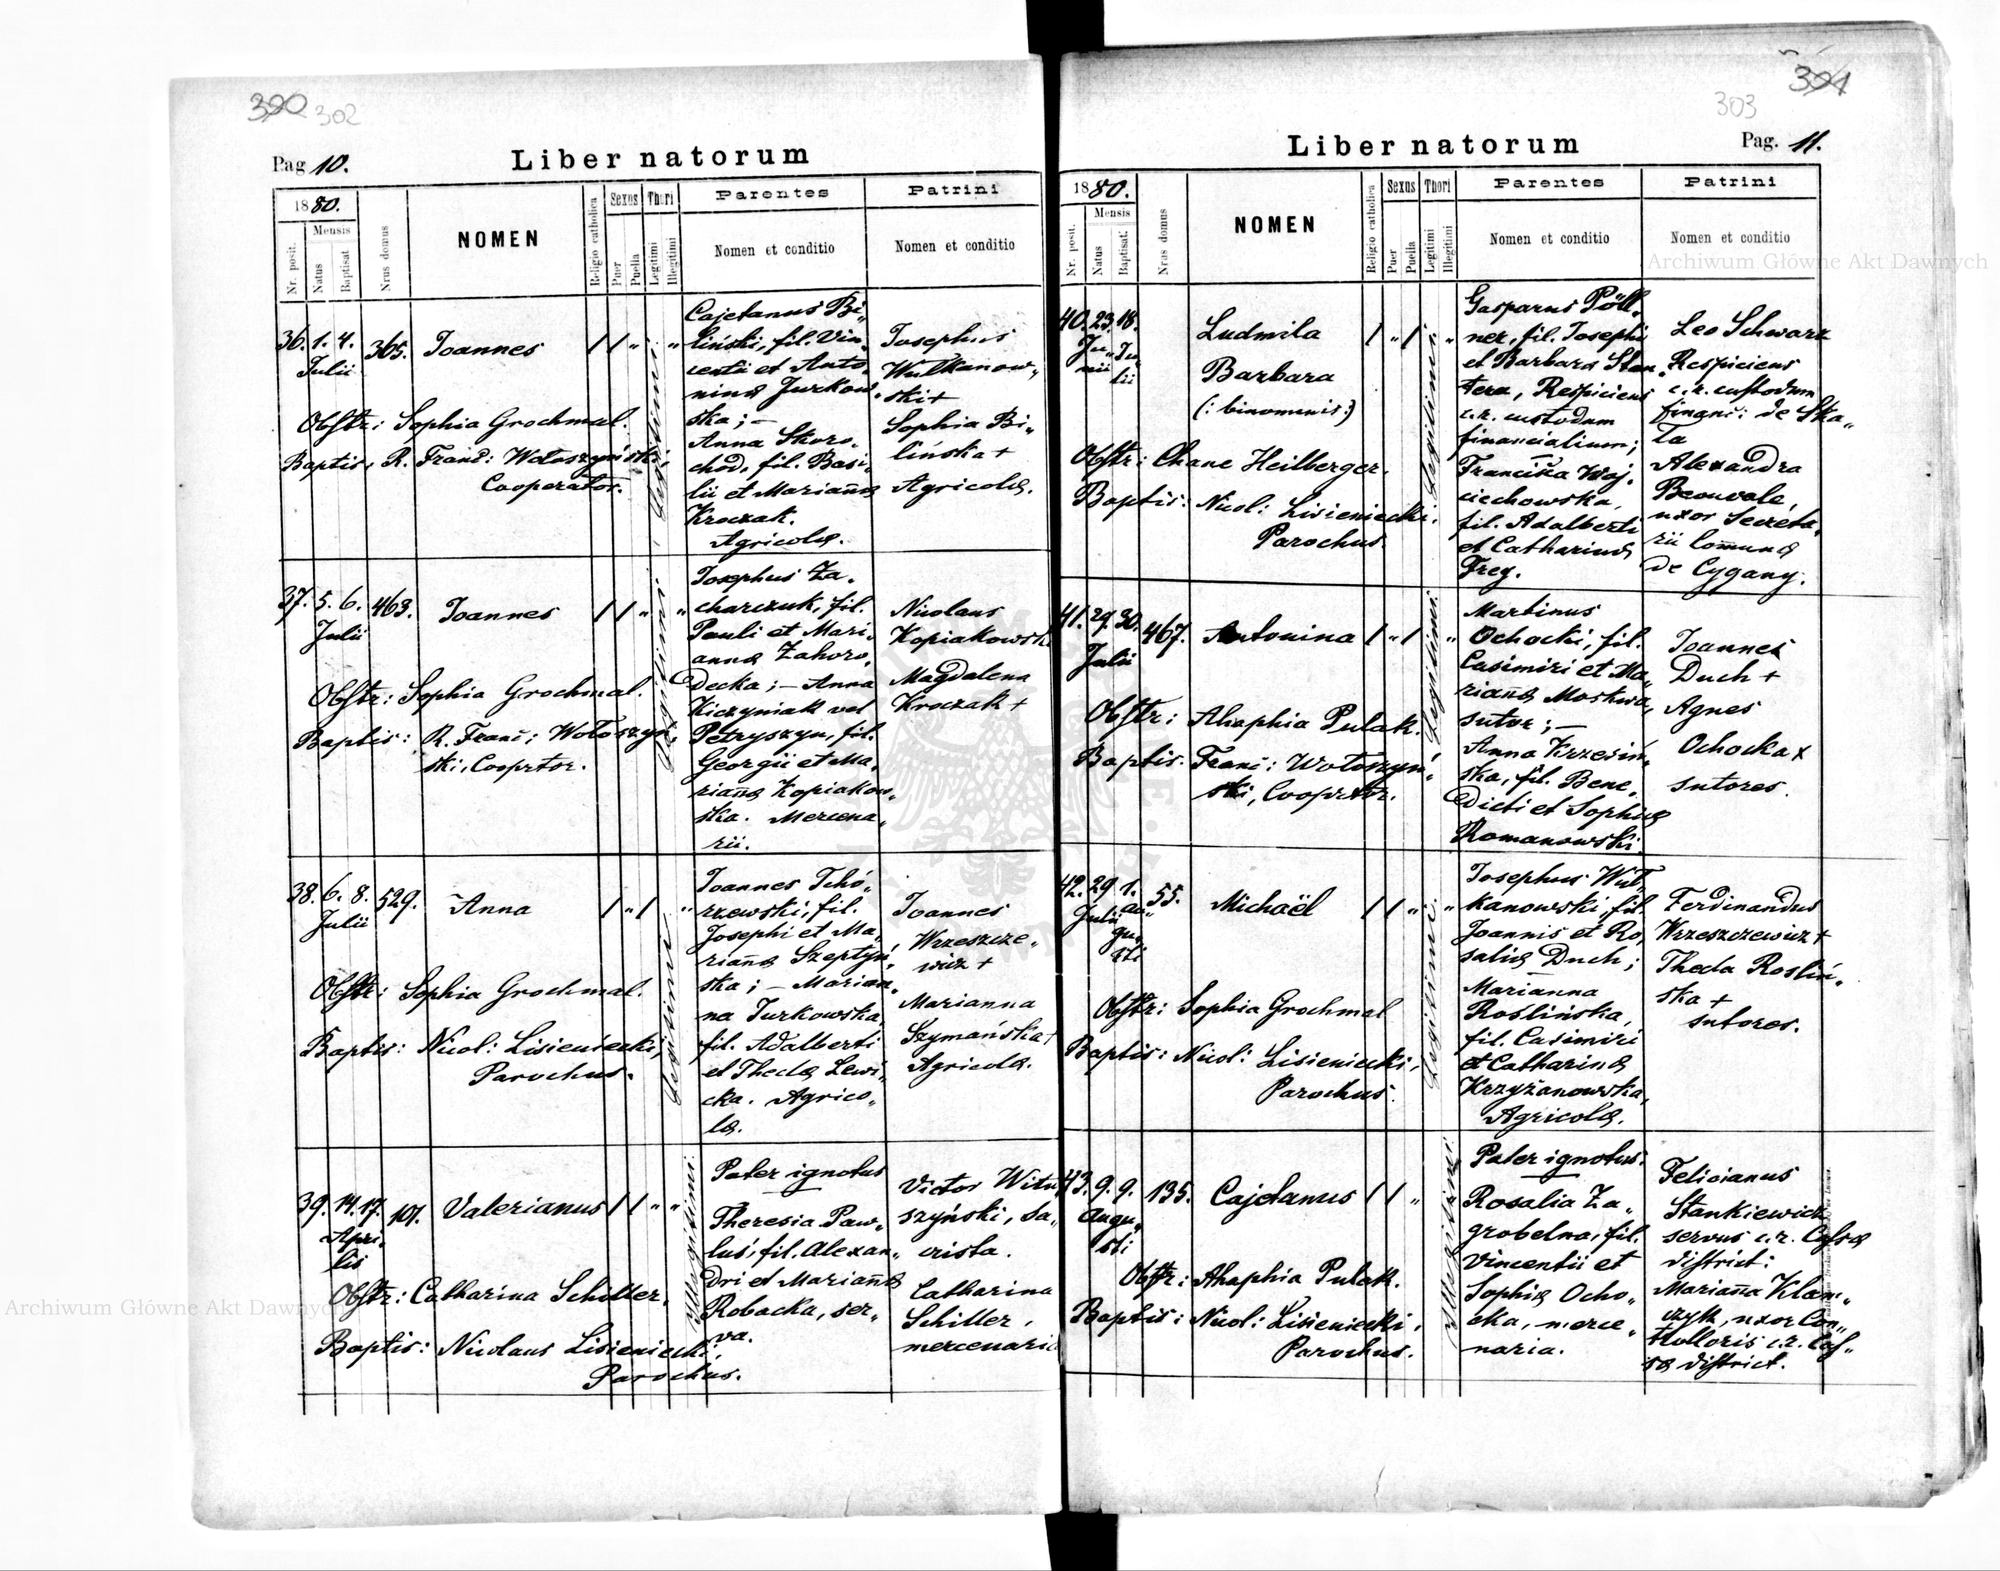 320 302
Pag 10.
Liber natorum
1880.
Mensis
Nr. posit.
Natus
Baptisat
Nrus domus
NOMEN
Religio catholica
Sexus
Puer
Puella
Thori
Legitimi
Illegitimi
Parentes
Nomen et conditio
Patrini
Nomen et conditio
36. 1. 4. 365. Joannes
Julii
Obstr: Sophia Grochmal.
Baptis. R. Franc: Wołoszyński,
Cooperator.
Legitimi
Cajetanus Bi„
liński, fil. Vin„
centii et Anto„
ninæ Jurkow„
ska; —
Anna Skoro„
chod, fil. Basi„
lii et Mariannæ
Kroczak.
Agricolæ.
Josephus
Wulkanow„
ski +
Sophia Bi„
lińska +
Agricolæ.
37. 5. 6. 463. Joannes
Julii
Obstr: Sophia Grochmal.
Baptis: R. Franc: Wołoszyń„
ski, Cooprtor.
Legitimi
Josephus Za„
charczuk, fil.
Pauli et Mari„
annæ Zahoro„
decka; — Anna
Kiczyniak vel
Petryszyn, fil.
Georgii et Ma„
riannæ Kopiakow„
ska. Mercena„
rii.
Nicolaus
Kopiakowski
Magdalena
Kroczak +
38. 6. 8. 529. Anna
Julii
Obstr: Sophia Grochmal.
Baptis: Nicol: Lisieniecki,
Parochus.
Legitimi
Joannes Tchó„
rzewski, fil.
Josephi et Ma„
riannæ Szeptyń„
ska; — Marian„
na Jurkowska,
fil. Adalberti
et Theclæ Lewi„
cka. Agrico„
læ.
Joannes
Wrzeszcze„
wicz +
Marianna
Szymańska +
Agricolæ.
39. 14. 17. 101. Valerianus
Apri„
lis
Obstr: Catharina Schiller,
Baptis: Nicolaus Lisieniecki,
Parochus.
Illegitimi
Pater ignotus
Theresia Paw„
luś, fil. Alexan„
dri et Mariannæ
Robacka, ser„
va.
Victor Witu„
szyński, sa„
crista.
Catharina
Schiller,
mercenaria
321
303
Liber natorum
Pag. 11.
1880.
Mensis
Nr. posit.
Natus
Baptisat.
Nrus domus
NOMEN
Religio catholica
Sexus
Puer
Puella
Thori
Legitimi
Illegitimi
Parentes
Nomen et conditio
Patrini
Nomen et conditio
40. 23. 18. Ludmila
Ju„ Ju„
nii lii
Barbara
(: binominis:)
Obstr: Chane Heilberger.
Baptis: Nicol: Lisieniecki,
Parochus.
Legitimi
Gasparus Pöll„
ner, fil. Josephi
et Barbaræ Stan„
tera, Respiciens
c.r. custodum
financialium;
Franciska Woj„
ciechowska,
fil. Adalberti
et Catharinæ
Frey.
Leo Schwarz
Respiciens
c.r. custodum
financ: de Ska„
ła
Alexandra
Beauvale,
uxor Secreta„
rii Comunæ
de Cygany.
41. 29. 30. 467. Antonina
Julii
Obstr: Ahaphia Pulak.
Baptis. Franc: Wołoszyń„
ski, Cooprtor.
Legitimi
Martinus
Ochocki, fil.
Casimiri et Ma„
riannæ Moskwa,
sutor; —
Anna Krzesiń„
ska, fil. Bene„
dicti et Sophiæ
Romanowski.
Joannes
Duch +
Agnes
Ochocka x
sutores.
42. 29. 1. 55. Michaël
Julii au„
gu„
sti
Obstr: Sophia Grochmal
Baptis: Nicol: Lisieniecki,
Parochus.
Legitimi
Josephus Wul„
kanowski, fil.
Joannis et Ro„
saliæ Duch;
Marianna
Roslińska,
fil. Casimiri
et Catharinæ
Krzyżanowska,
Agricolæ.
Ferdinandus
Wrzeszczewicz +
Thecla Rosliń„
ska +
sutores.
43. 9. 9. 135. Cajetanus
Augu„
sti
Obstr: Ahaphia Pulak.
Baptis: Nicol: Lisieniecki,
Parochus.
Illegitimi
Pater ignotus.
Rosalia Za„
grobelna, fil.
Vincentii et
Sophiæ Ocho„
cka, merce„
naria.
Felicianus
Stankiewicz
servus c.r. Cassæ
district:
Marianna Klam„
czyk, uxor Con„
trolloris c.r. Cas„
sæ district.
Archiwum Główne Akt Dawnych
Archiwum Główne Akt Dawnych